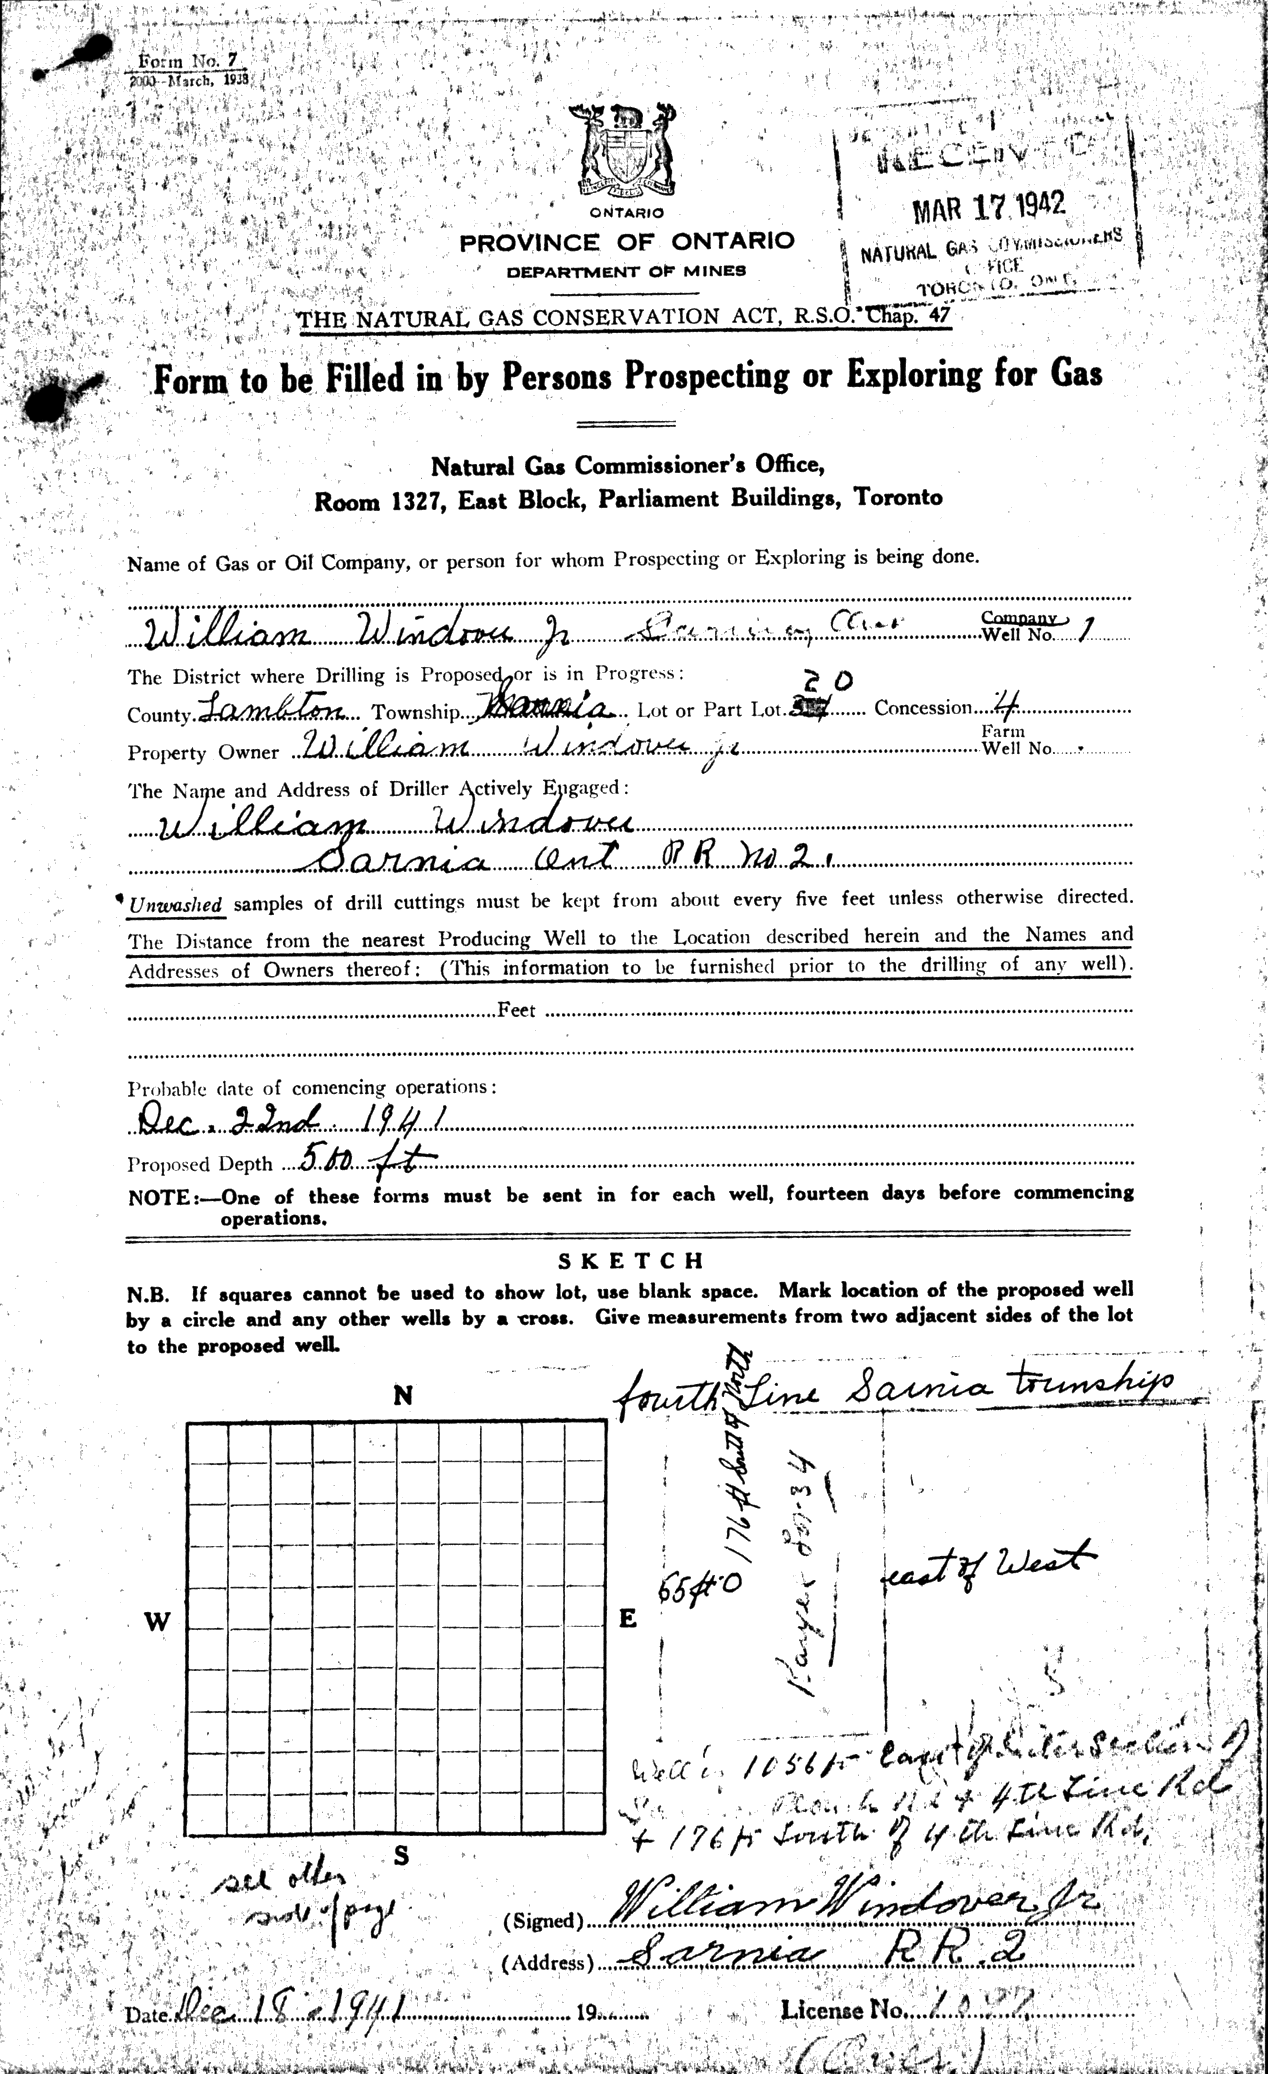 Form No. 7
2000—March, 1938
RECEIVED
MAR 17 1942
NATURAL GAS COMMISSIONERS
OFFICE
TORONTO, ONT.
ONTARIO
PROVINCE OF ONTARIO
DEPARTMENT OF MINES
THE NATURAL GAS CONSERVATION ACT, R.S.O. Chap. 47
Form to be Filled in by Persons Prospecting or Exploring for Gas
Natural Gas Commissioner's Office,
Room 1327, East Block, Parliament Buildings, Toronto
Name of Gas or Oil Company, or person for whom Prospecting or Exploring is being done.
William Windover Jr Company Well No. 1
The District where Drilling is Proposed or is in Progress:
County Lambton Township Sarnia Lot or Part Lot 20 Concession 4
Property Owner William Windover Jr Farm Well No.
The Name and Address of Driller Actively Engaged:
William Windover
Sarnia Ont R R No 2.
Unwashed samples of drill cuttings must be kept from about every five feet unless otherwise directed.
The Distance from the nearest Producing Well to the Location described herein and the Names and
Addresses of Owners thereof: (This information to be furnished prior to the drilling of any well).
Feet
Probable date of comencing operations:
Dec. 22nd 1941
Proposed Depth 500 ft
NOTE:—One of these forms must be sent in for each well, fourteen days before commencing
operations.
SKETCH
N.B. If squares cannot be used to show lot, use blank space. Mark location of the proposed well
by a circle and any other wells by a cross. Give measurements from two adjacent sides of the lot
to the proposed well.
N
fourth Line Sarnia township
176 ft South of North
34
65 ft O
east of West
W
E
Well is 1056 ft East of Intersection of
Rd + 4th Line Rd
+ 176 ft South of 4th Line Rd.
S
see other
side of page
(Signed) William Windover Jr
(Address) Sarnia R R. 2
Date Dec 18 - 1941 19
License No.
(Over)